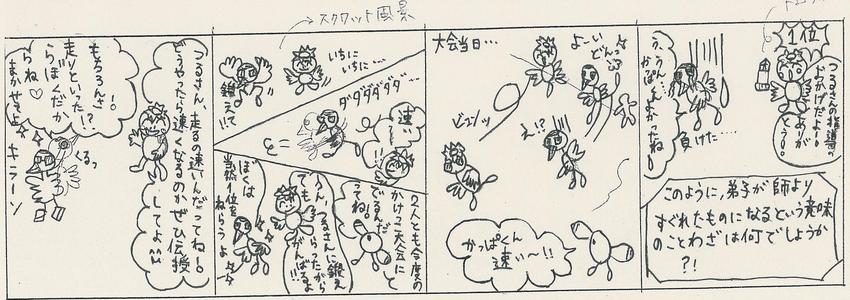 つるさん、走るの速いんだってね!。
どうやったら速くなるのかぜひ伝授
してよ
もちろんさ!。
走りといったら!?
ぼくだか
らね♡
まかせてよ
くるっ
キラーン
→スクワット風景
いちに
いちに…
鍛えて!!
ダダダダダダ…
速い
…!!!
2人とも今度の
かけっこ大会に
でるんだ
ってね。
うん、つるさんに鍛え
てもらったから
がんばるよ!!!
ぼくは
当然1位を
ねらうよ
大会当日…
よーい
どんっ
ビュンッ
え!?
かっぱくん
速い〜!!
1位
つるさんの指導の
おかげだよー!
ありが
とうー!。
う、うん、
かっぱくんよかったね…
負けた…
このように,弟子が師より
すぐれたものになるという意味
のことわざは何でしょうか
?!